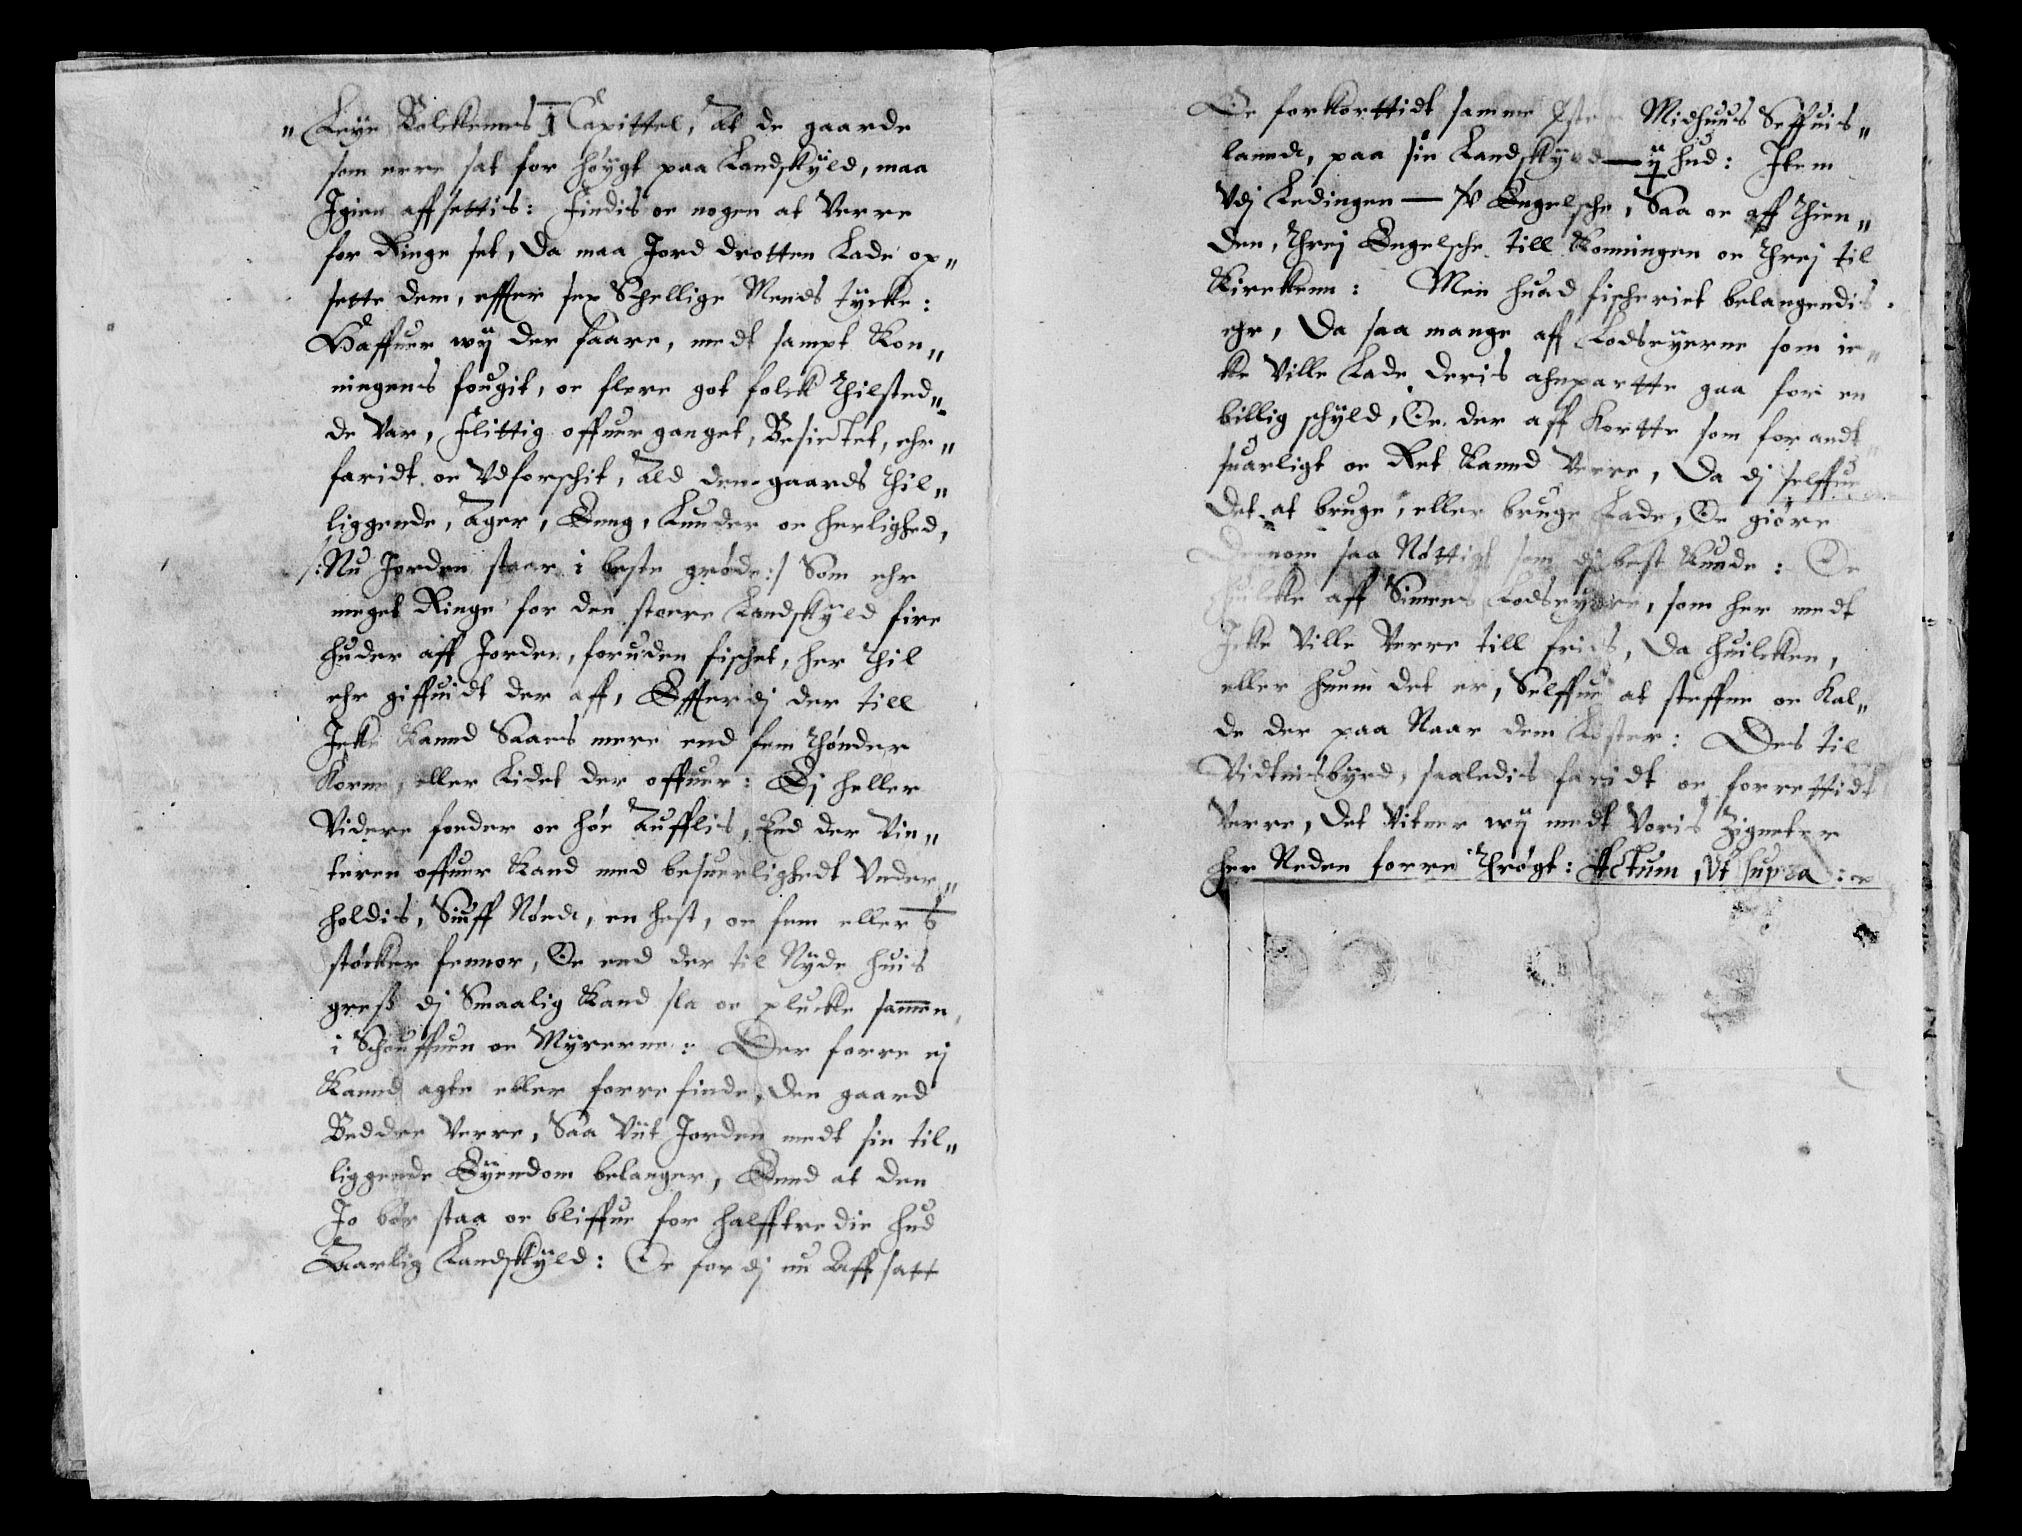 „ Leye Bolckenns 1 Capittel, At de gaarde
som erre sat for höygt paa Landskÿld, maa
Igien affsettis: Findis oc nogen at Verre
for Ringe set, Da maa Jord drotten Lade op„
sette dem, effter sex Schellige Mends tÿcke:
Haffuer wÿ der faare, medt sampt Kon„
ningens fougit, oc flere got folck Thilsted„
de Var, Flittig offuerganget, Besictet, ehr„
faridt oc Vdforschit, Ald den gaards Thil„
liggende, Ager, Eeng, Lunder oc herlighed,
/: Nu Jorden staar i beste gröde :/ Som ehr
meget Ringe for den storre Landskÿld fire
huder aff Jorden, foruden fischet, her Thil
ehr giffuidt der aff, Effterdj der till
Icke Kannd Saaes mere end fem Thönder
Korne, eller Lidet der offuer: Ej heller
Videre foeder oc höe Aufflis, End der Vin„
teren offuer Kand med besuerlighedt Vnder„
holdis, Siuff Nöed, en hest, oc fem eller 6
støcker fennor, Oc end der til Nyde huis
greß dj Smaalig Kand sla oc plucke sammen,
i Schouffuen oc Myrerne: Der forre ej
Kannd agte eller forrefinde, den gaard
Beddre Verre, Saa Vit Jorden medt sin til„
liggende Eÿendom belanger, Ennd at den
Jo bör staa oc bliffue for halfftredie hud
Aarlig Landskÿld: Oc fordj nu Affsatt
Oc forkorttidt samme Midhuus Seffuis„
lannd, paa sin Landskyld — ij hud: Item
Vdj Ledingen — Engelsche, Saa oc aff Thien„
den, Threj Engelsche till Konningen oc Threj til
Kirckenn: Men huad fischeriet belangendis
ehr, Da saa mange aff Lodseyerne som ic„
ke Ville Lade deris ahnpartte gaa for en
billig schÿld, Oc der aff Kortte som forandt
suarligt oc Ret Kannd Verre, Da dj selffue
det at bruge, eller bruge Lade, Oc giöre
Dennom saa Nöttigt som dj best Kunde: Oc
huilcke aff Simens Lodseyere, som her medt
Icke Ville Verre till frids, Da huilcken,
eller huem det er, Selffue at steffne oc Kal„
de der paa Naar dem Löster: Des til
Vidtnisbyrd, saaledis faridt oc forrettidt
Verre, Det Vitner wÿ medt Voris Zigneter
her Neden forre Thrögt: Actum, Vt supra :